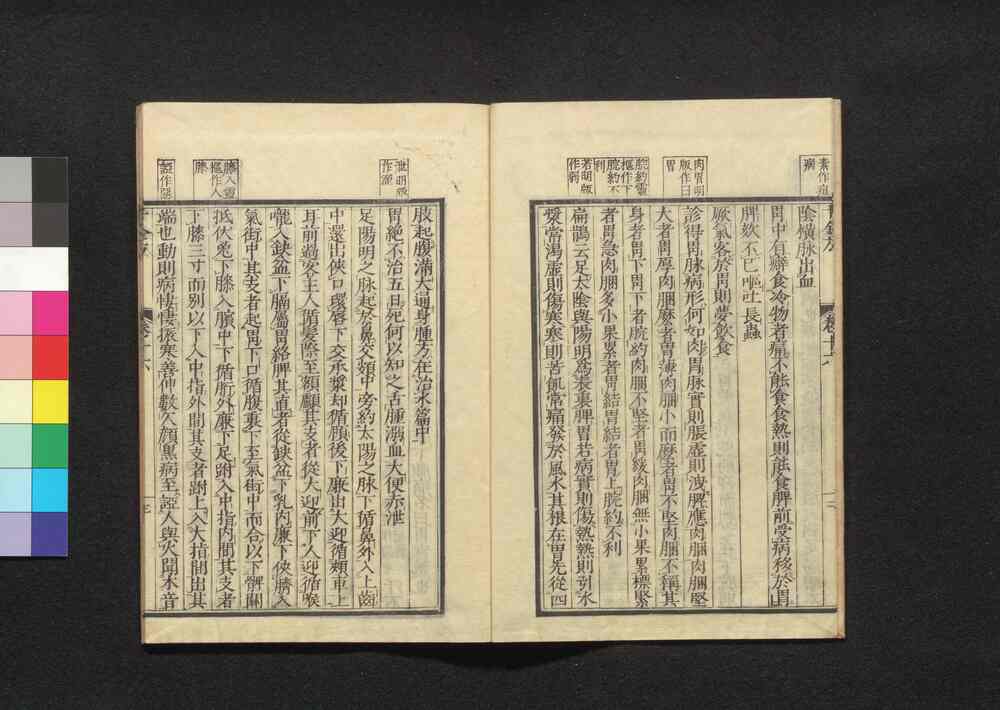 陰橫脉出血
胃中有癖食冷物者痛不能食食熱則能食脾前受病移於胃
脾欬不已嘔吐長蟲
厥氣客於胃則夢飲食
肉胃明
版作曰
胃
診得胃脉病形何如肉胃脉實則脹虛則洩脾應肉肉䐃堅
大者胃厚肉䐃麼者胃薄肉䐃小而麼者胃不堅肉䐃不稱其
脘約靈
樞作下
脘約不
利
身者胃下胃下者脘約肉䐃不堅者胃緩肉䐃無小果累標緊
者胃急肉䐃多小果累者胃結胃結者胃上脘約不利
若明版
作弱
扁鵲云足太陰與陽明為表裏脾胃若病實則傷熱熱則引水
漿常渴虛則傷寒寒則苦飢常痛發於風水其根在胃先從四
肢起腹滿大通身腫方在治水篇中
泄明版
胃絕不治五日死何以知之舌腫溺血大便赤泄
足陽明之脉起於鼻交頞中旁約太陽之脉下循鼻外入上齒
中還出俠口環脣下交承漿却循頤後下廉出大迎循頰車上
耳前過客主人循髮際至額顱其支者從大迎前下人迎循喉
嚨入缺盆下膈屬胃絡脾其直者從缺盆下乳內廉下俠臍入
氣街中其支者起胃下口循腹裏下至氣街中而合以下髀關
膝入靈
樞作入
膝
抵伏兔下膝入臏中下循䯒外廉下足跗入中指內間其支者
下膝三寸而別以下入中指外間其支者跗上入大指間出其
端也動則病悽悽振寒善伸數欠顏黑病至諲人與火聞木音